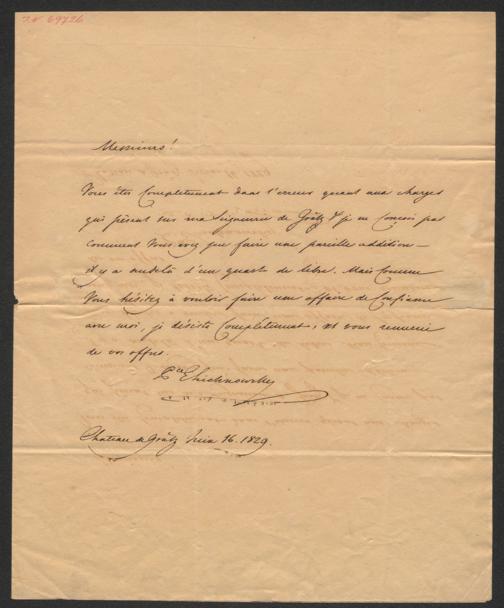 I.N 69726
Messieurs!
Vous êtes Complettement dans l'erreur quant aux charges
qui pèsent sur ma Seigneurie de Grätz & je ne Conçois pas
comment Vous avez pu faire une pareille addition –
il y a audela d'un quart de libre. Mais Comme
Vous hésitez à vouloir faire une affaire de Confiance
avec moi, je désiste Complettement, et vous remercie
de vos offres.
Château de Grätz Juin 16. 1829.